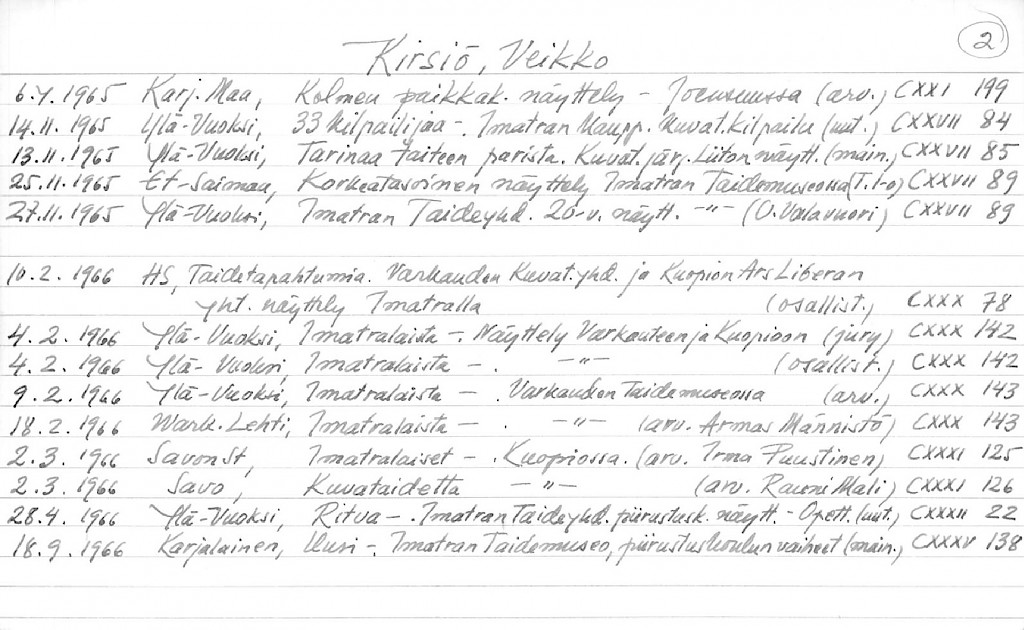 2
Kirsiö, Veikko
6.4.1965 Karj. Maa, Kolmen paikkak. näyttely - Joensuussa (arv.) CXXI 199
14.11.1965 Ylä-Vuoksi, 33 kilpailijaa -. Imatran Kaupp. kuvat.kilpailu (uut.) CXXVII 84
13.11.1965 Ylä-Vuoksi, Tarinaa taiteen parista. Kuvat.järj. Liiton näytt. (main.) CXXVII 85
25.11.1965 Et-Saimaa, Korkeatasoinen näyttely Imatran Taidemuseossa (T.I-o) CXXVII 89
27.11.1965 Ylä-Vuoksi, Imatran Taideyhd. 20-v. näytt. -"- (O.Valavuori) CXXVII 89
10.2.1966 HS, Taidetapahtumia. Varkauden Kuvat.yhd. ja Kuopion Ars Liberan
yht. näyttely Imatralla (osallist.) CXXX 78
4.2.1966 Ylä-Vuoksi, Imatralaista -. Näyttely Varkauteen ja Kuopioon (jury) CXXX 142
4.2.1966 Ylä-Vuoksi, Imatralaista -. -"- (osallist.) CXXX 142
9.2.1966 Ylä-Vuoksi, Imatralaista - . Varkauden Taidemuseossa (arv.) CXXX 143
18.2.1966 Wark. Lehti, Imatralaista - . -"- (arv. Armas Männistö) CXXX 143
2.3.1966 Savon St, Imatralaiset - . Kuopiossa. (arv. Irma Puustinen) CXXXI 125
2.3.1966 Savo, Kuvataidetta -"- (arv. Rauni Mali) CXXXI 126
28.4.1966 Ylä-Vuoksi, Ritva -. Imatran Taideyhd. piirustusk. näytt. - Opett. (uut.) CXXXII 22
18.9.1966 Karjalainen, Uusi -. Imatran Taidemuseo, piirustuskoulun vaiheet (main.) CXXXV 138